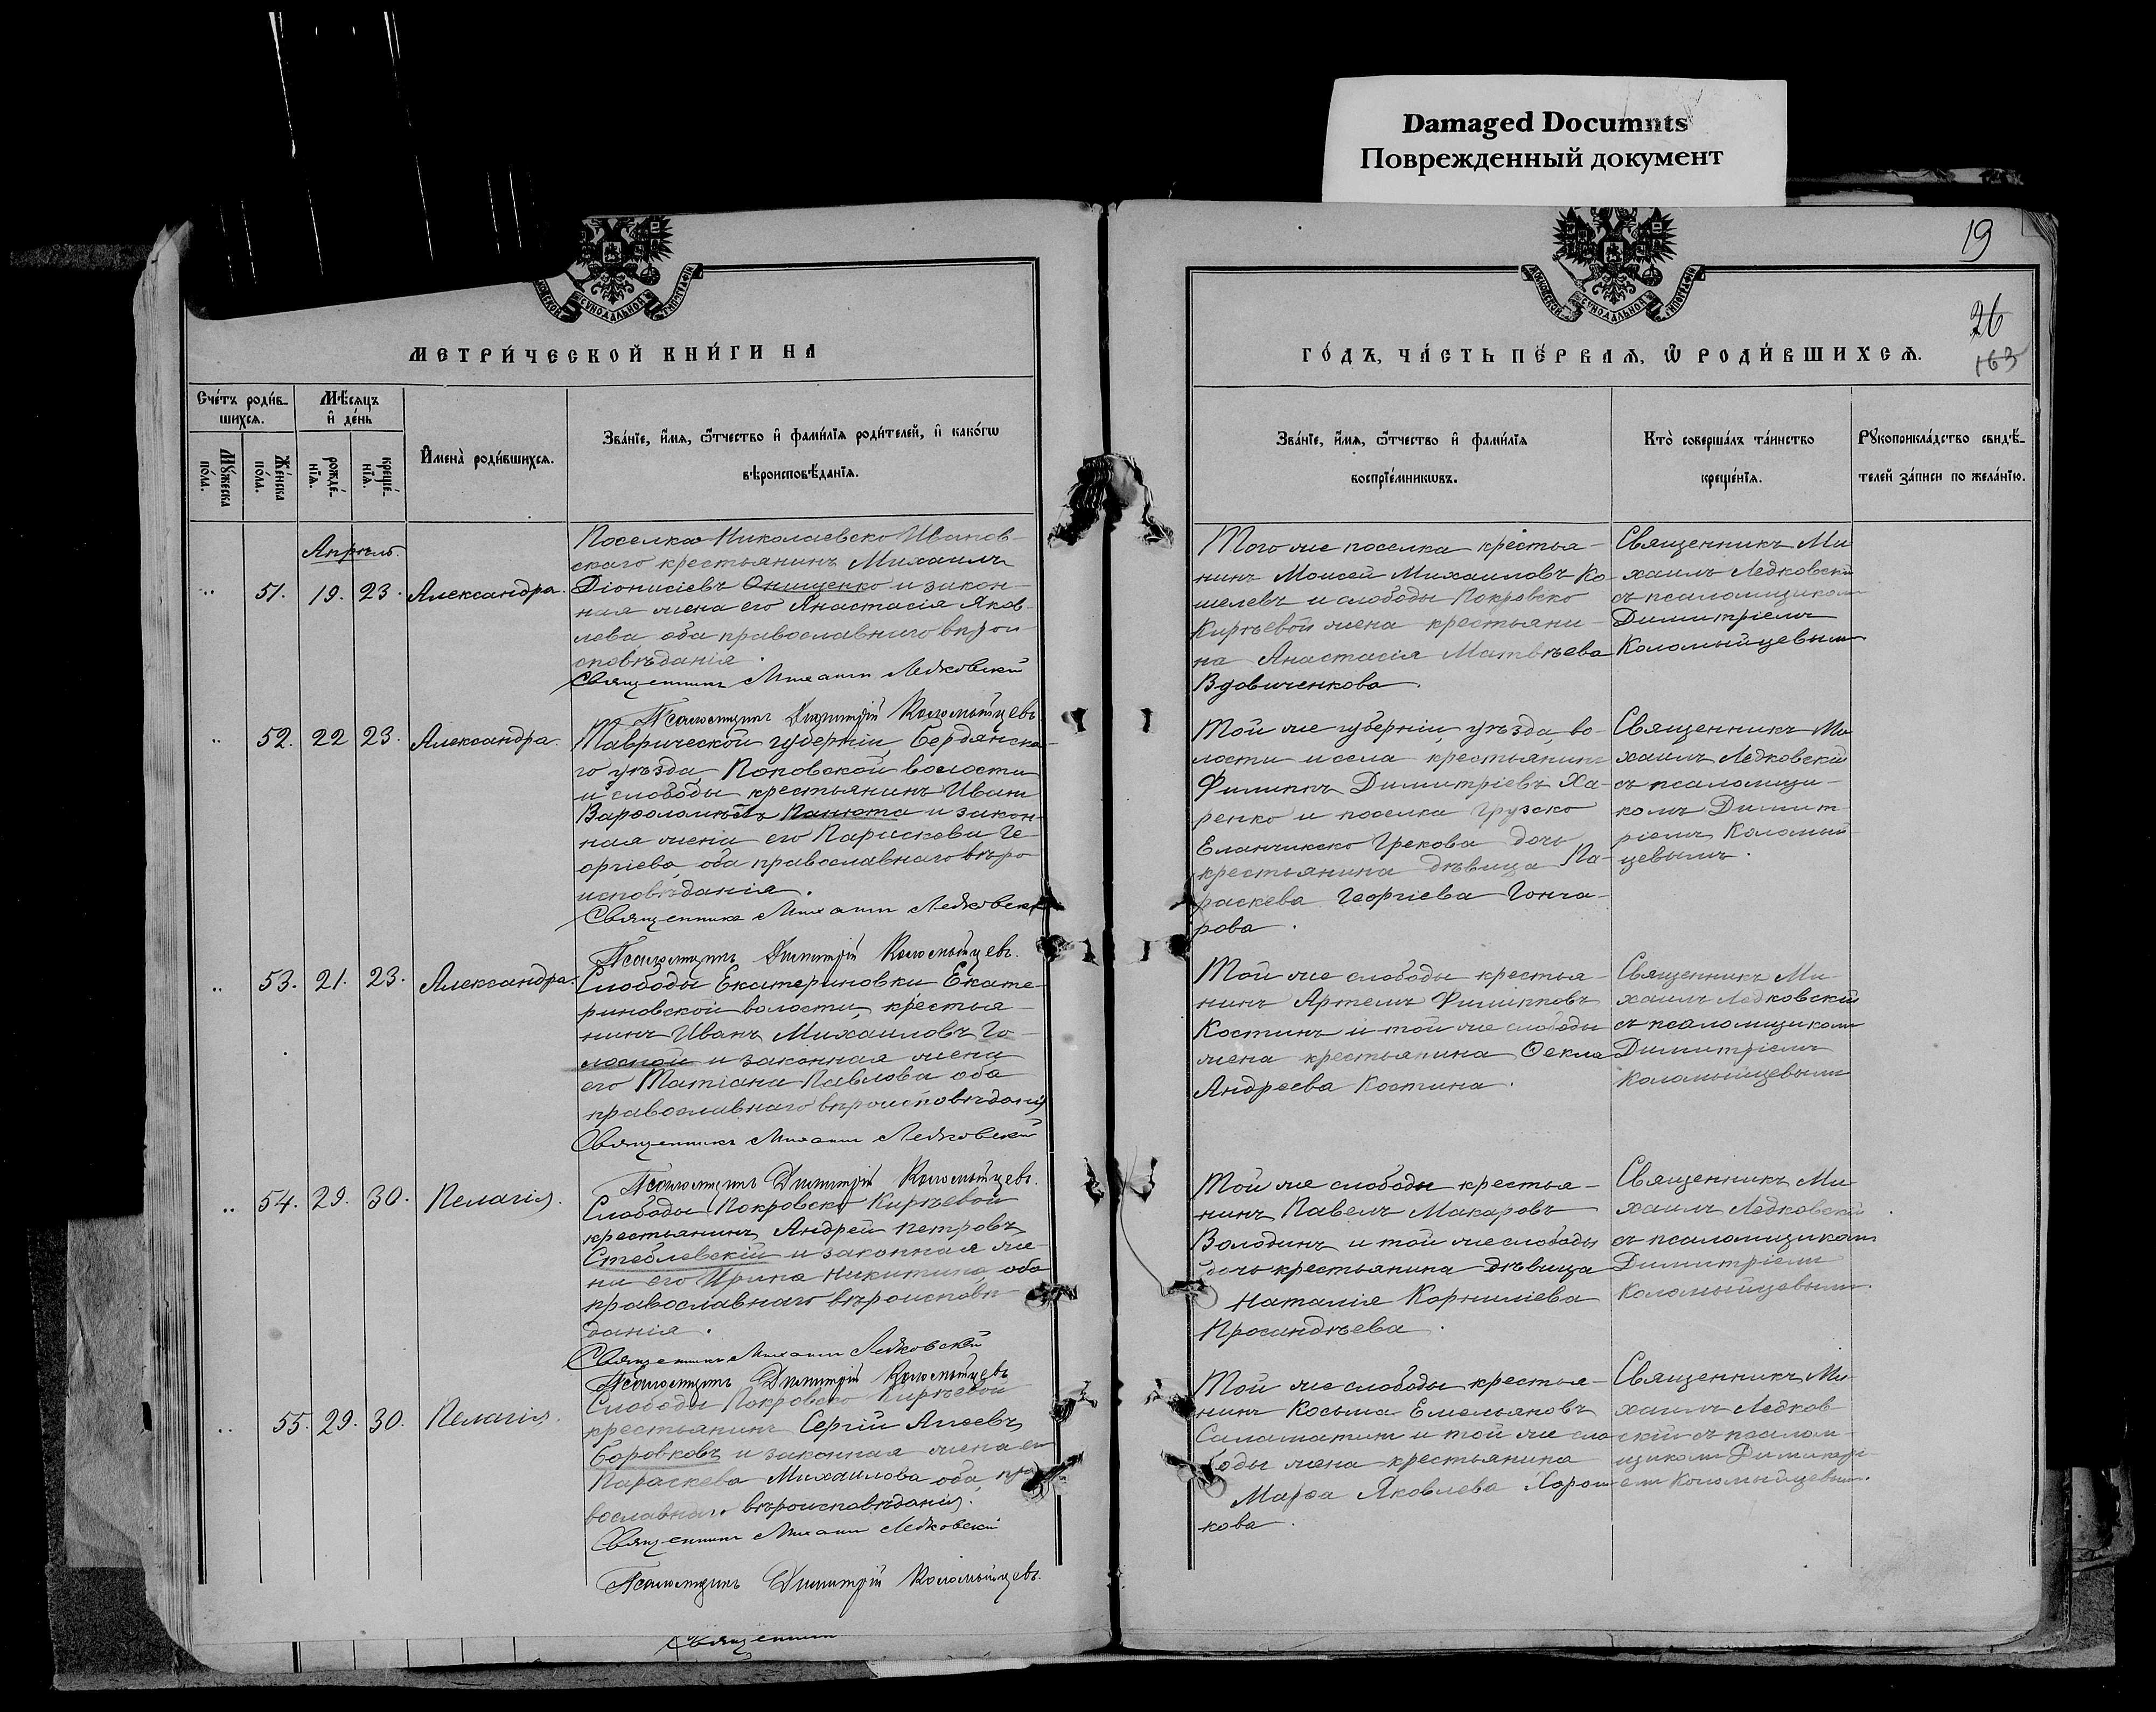 Damaged Documnts
Поврежденный документ
19
26
163
МОСКОВСКОЙ СѴНОДАЛЬНОЙ ТИПОГРАФІИ
МЕТРИ́ЧЕСКОЙ КНИ́ГИ НА
ГО́ДЪ, ЧА́СТЬ ПЕ́РВАѦ, Ѿ РОДИ́ВШИХСѦ.
Сче́тъ роди́в-
шихсѧ.
Мѣ́сѧцъ
и҆ де́нь
Мꙋ́жеска
по́ла.
Же́нска
по́ла.
рожде́-
нїѧ.
креще́-
нїѧ.
И҆мена̀ роди́вшихсѧ.
Зва́нїе, и҆́мѧ, ѻ҆́тчество и҆ фами́лїѧ роди́телей, и҆ како́гѡ
вѣроисповѣ́данїѧ.
Зва́нїе, и҆́мѧ, ѻ҆́тчество и҆ фами́лїѧ
воспрїе́мникѡвъ.
Кто̀ соверша́лъ та́инство
креще́нїѧ.
Рꙋкоприкла́дство свидѣ́-
телей за́писи по жела́нїю.
Апрѣль.
51. 19. 23. Александра.
Поселка Николаевско Иванов-
скаго крестьянинъ Михаилъ
Діонисіевъ Онищенко и закон-
ная жена его Анастасія Яков-
лева, оба православнаго вѣрои-
сповѣданія.
Священникъ Михаилъ Ледковскій
Псаломщикъ Димитрій Коломыйцевъ
Того же поселка крестья-
нинъ Моисей Михаиловъ Ко-
шелевъ и слободы Покровско
Кирѣевой жена крестьяни-
на Анастасія Матвѣева
Вдовиченкова.
Священникъ Ми
хаилъ Ледковскій
съ псаломщикомъ
Димитріемъ
Коломыйцевымъ
52. 22 23. Александра.
Таврической губерніи, Бердянска-
го уѣзда, Поповской волости
и слободы крестьянинъ Иванъ
Варѳоломѣевъ Панюта и закон-
ная жена его Параскева Ге-
оргіева, оба православнаго вѣро
исповѣданія.
Священникъ Михаилъ Ледковскій
Псаломщикъ Димитрій Коломыйцевъ.
Той же губерніи, уѣзда, во-
лости и села крестьянинъ
Филиппъ Димитріевъ Ха-
ренко и поселка Грузско
Еланчикско Грекова дочь
крестьянина дѣвица Па-
раскева Георгіева Гонча-
рова.
Священникъ Ми
хаилъ Ледковскій
съ псаломщи-
комъ Димит-
ріемъ Коломый-
цевымъ.
53. 21. 23. Александра.
Слободы Екатериновки Екате-
риновской волости, крестья-
нинъ Иванъ Михаиловъ Го-
лоспой и законная жена
его Татіана Павлова оба
православнаго вѣроисповѣданія
Священникъ Михаилъ Ледковскій
Псаломщикъ Димитрій Коломыйцевъ.
Той же слободы крестья-
нинъ Артемъ Филипповъ
Костинъ и той же слободы
жена крестьянина Ѳекла
Андреева Костина.
Священникъ Ми-
хаилъ Ледковскій
съ псаломщикомъ
Димитріемъ
Коломыйцевымъ
54. 29. 30. Пелагія.
Слободы Покровско Кирѣевой
крестьянинъ Андрей Петровъ
Стеблевскій и законная же-
на его Ирина Никитина, оба
православнаго вѣроисповѣ-
данія.
Священникъ Михаилъ Ледковскій
Псаломщикъ Димитрій Коломыйцевъ
Той же слободы крестья-
нинъ Павелъ Макаровъ
Володинъ и той же слободы
дочь крестьянина дѣвица
Наталія Корниліева
Просандѣева.
Священникъ Ми
хаилъ Ледковскій
съ псаломщикомъ
Димитріемъ
Коломыйцевымъ.
55. 29. 30. Пелагія.
Слободы Покровско Кирѣевой
крестьянинъ Сергій Агѣевъ
Боровковъ и законная жена его
Параскева Михаилова оба пра
вославнаго вѣроисповѣданія.
Священникъ Михаилъ Ледковскій
Псаломщикъ Димитрій Коломыйцевъ.
Той же слободы крестья-
нинъ Косьма Емельяновъ
Саламатинъ и той же сло
боды жена крестьянина
Марѳа Яковлева Хорош-
кова.
Священникъ Ми-
хаилъ Ледков
скій съ псалом-
щикомъ Димитрі-
емъ Коломыйцевым.
Священникъ